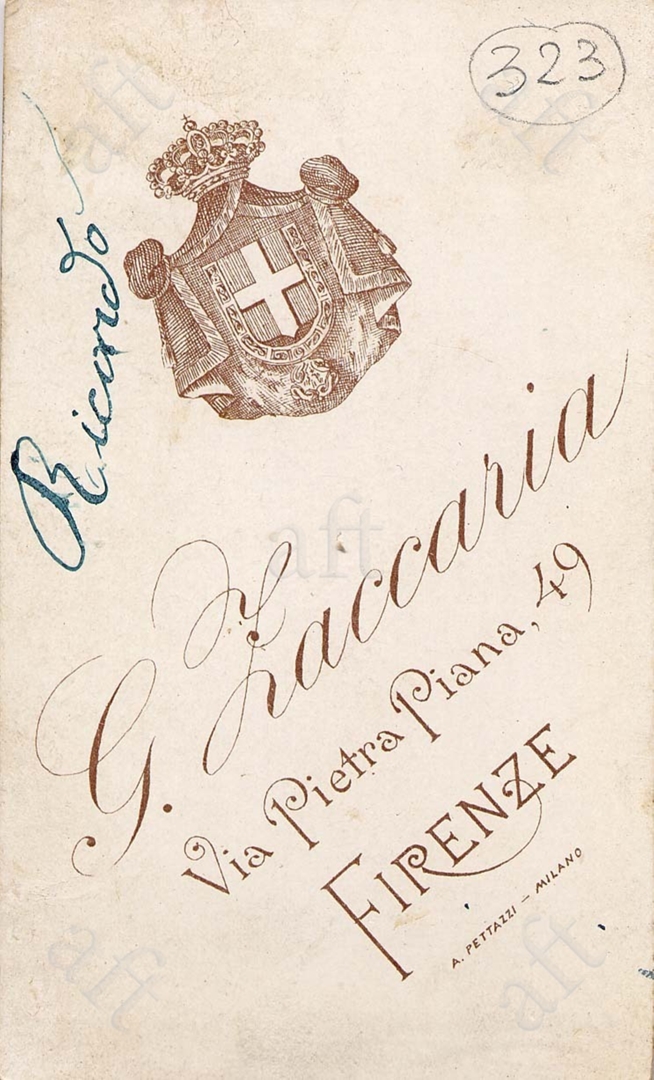 323
Riccardo
G. Zaccaria
Via Pietra Piana, 49
FIRENZE
A. PETTAZZI - MILANO
aft
aft
aft
aft
aft